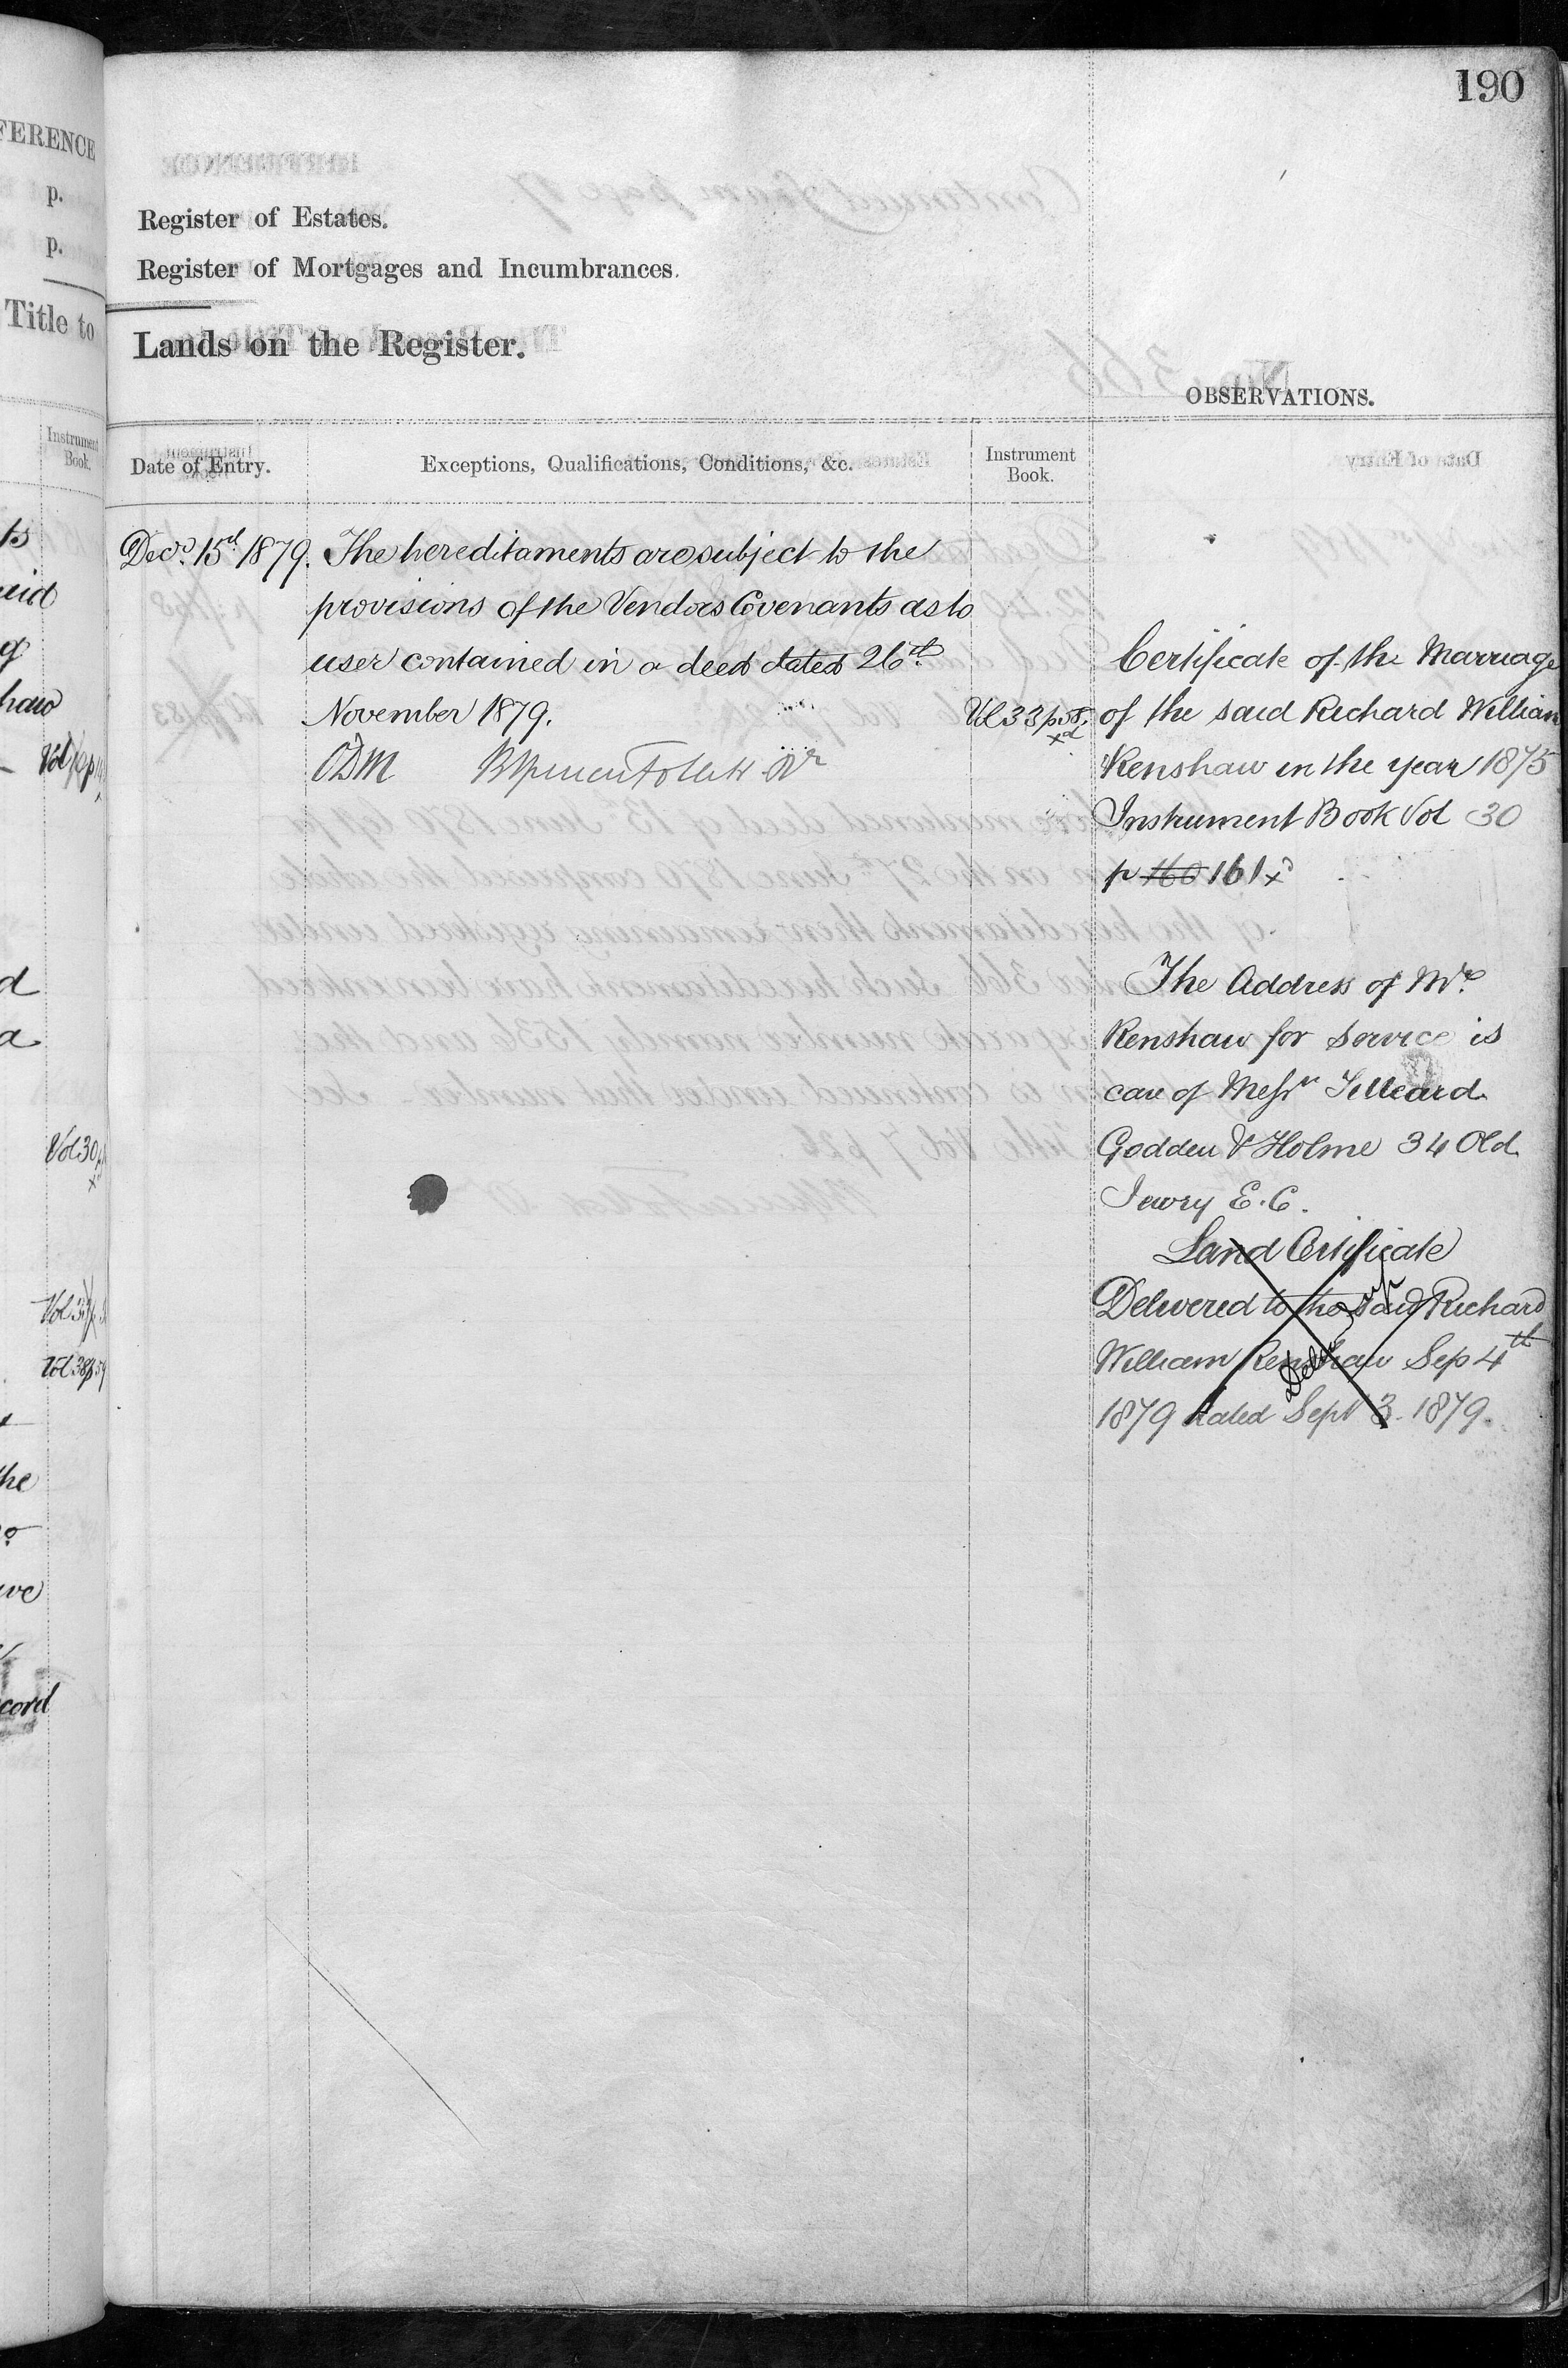 190
Register of Estates.
Register of Mortgages and Incumbrances.
Lands on the Register.
OBSERVATIONS.
Date of Entry.
Exceptions, Qualifications, Conditions, &c.
Instrument
Book.
Decr. 15th 1879. The hereditaments are subject to the
provisions of the Vendors Covenants as to
user contained in a deed dated 26th
November 1879.
Vol 33 p 58.
xd
ODM
Certificate of the Marriage
of the said Richard William
Renshaw in the year 1875
Instrument Book Vol 30
p 160 161 xd
The Address of Mr.
Renshaw for service is
care of Messrs Tilleard
Godden & Holme 34 Old
Jewry E.C.
Land Certificate
Delivered to the said Richard
William Renshaw Sep 4th
1879 dated Sept 3. 1879.
FERENCE
p.
p.
Title to
Instrument
Book.
Vol 30
Vol 38 p 59